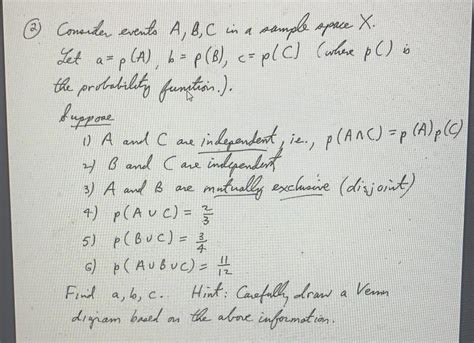 ② Consider events A, B, C in a sample space X.
Let a = p(A), b = p(B), c = p(C) (where p( ) is
the probability function.).
Suppose
1) A and C are independent, i.e., p(A∩C) = p(A)p(C)
2) B and C are independent
3) A and B are mutually exclusive (disjoint)
4) p(A∪C) = 2/3
5) p(B∪C) = 3/4
6) p(A∪B∪C) = 11/12
Find a, b, c. Hint: Carefully draw a Venn
digram based on the above information.